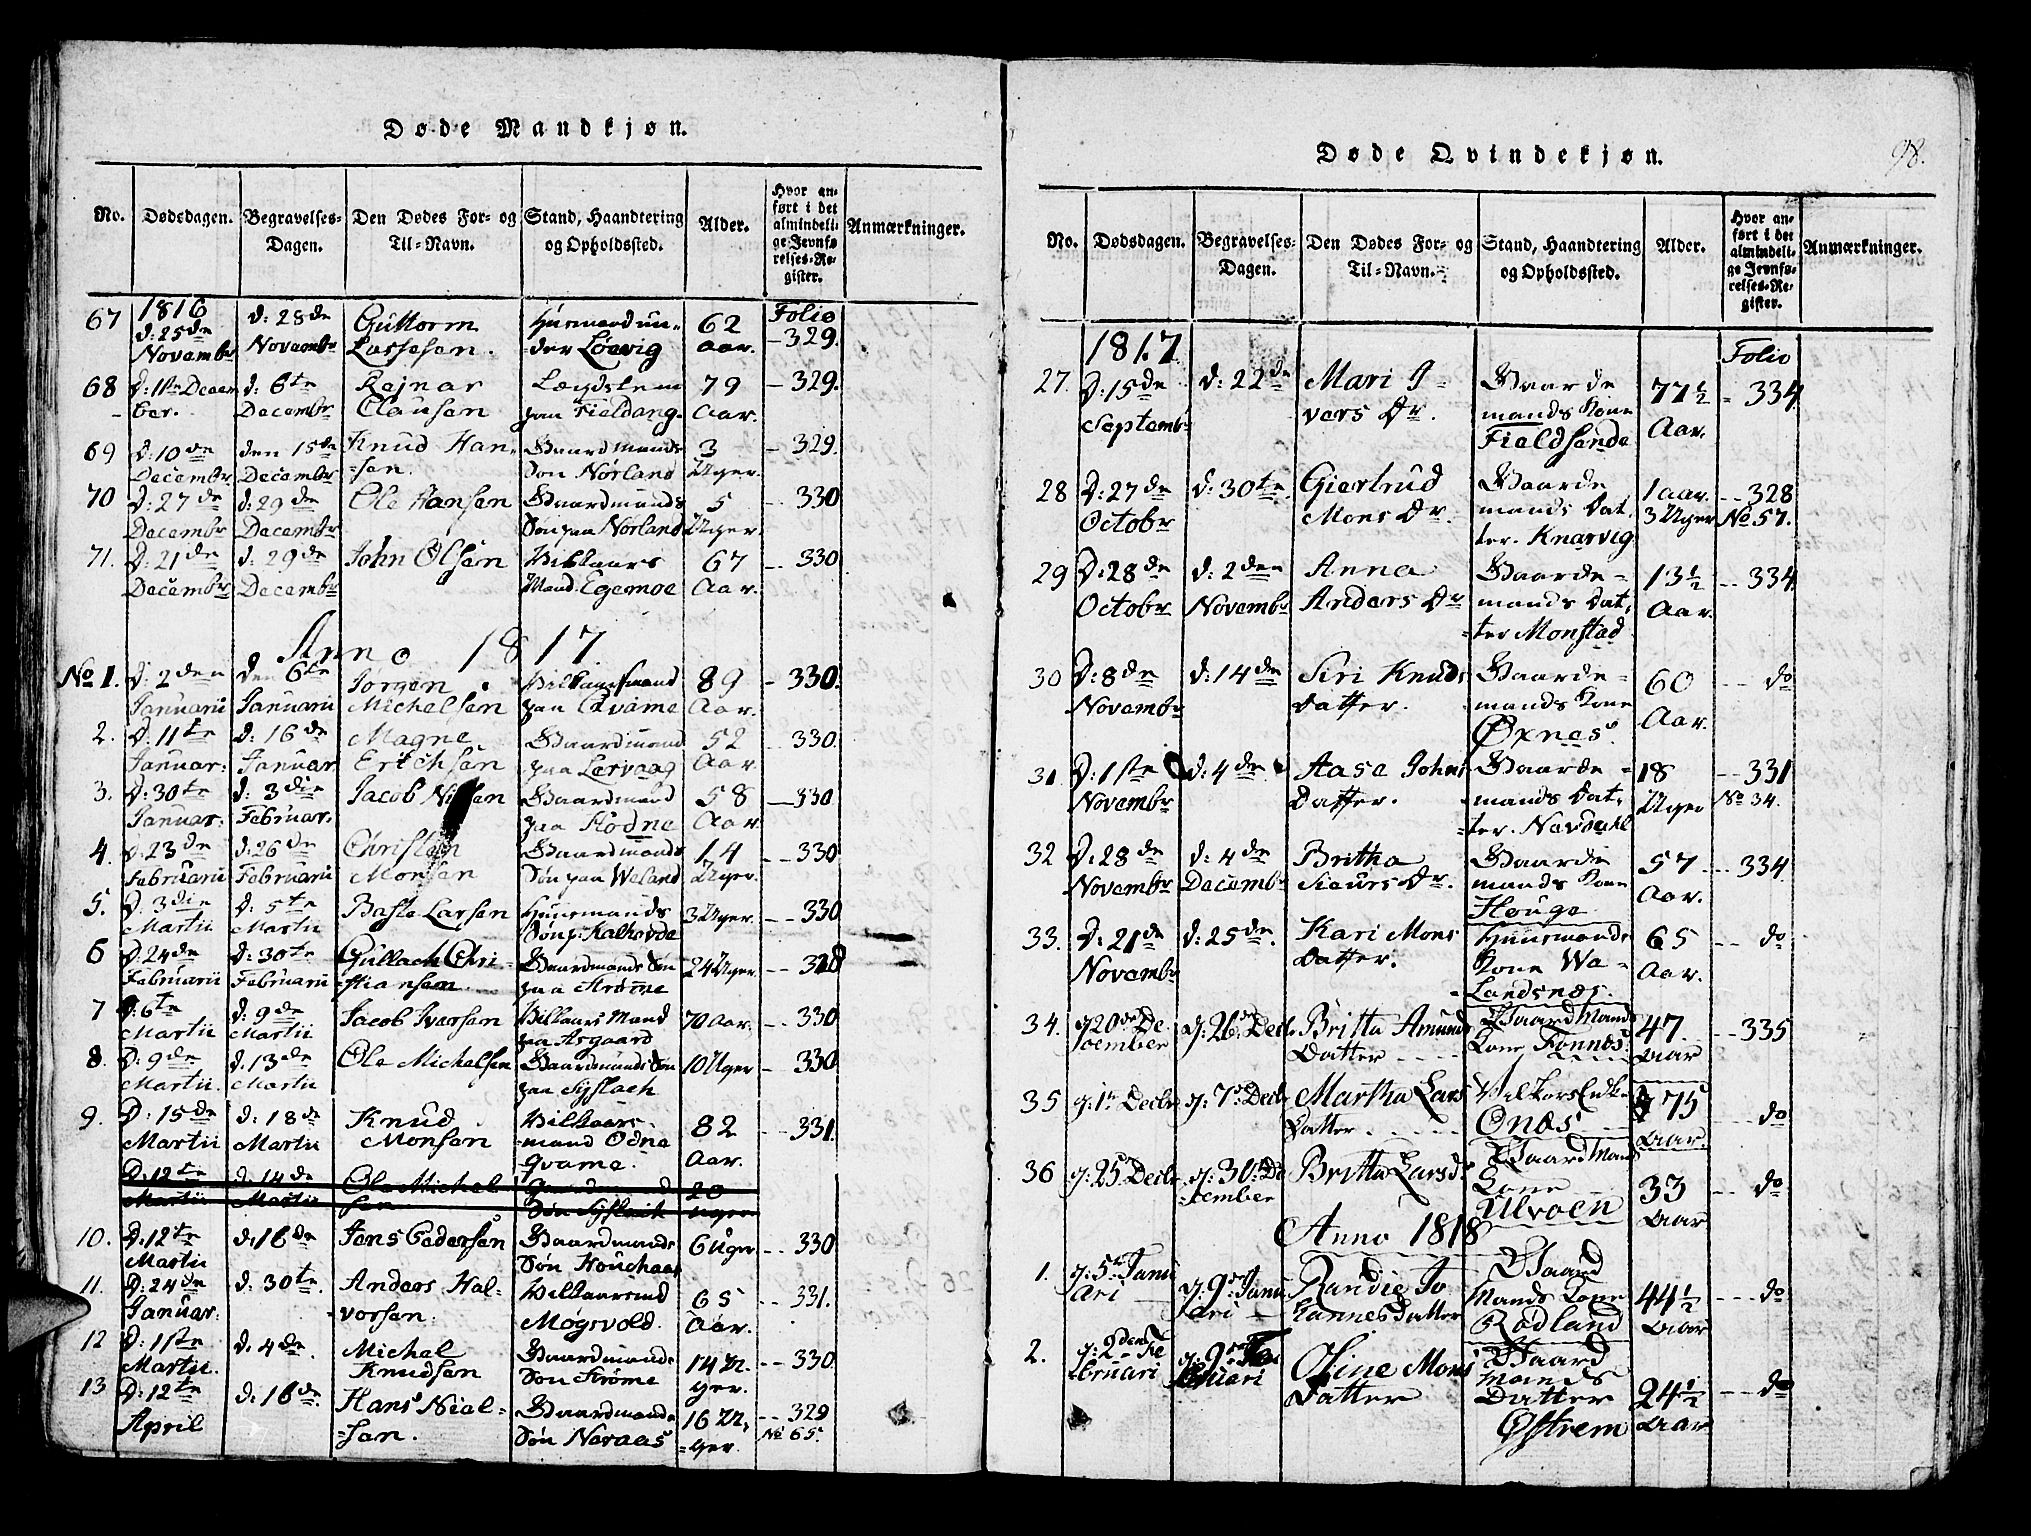 Døde Mandkjøn.
No. Dødsdagen. Begravelses-Dagen. Den Dødes For- og Til-Navn. Stand, Haandtering og Opholdssted. Alder. Hvor anført i det almindelige Jevnførelses-Register. Anmærkninger.
1816 Folio
67 d: 25de Novembr d: 28de Novembr Guttorm Lassesen. Huusmand under Löevig 62 Aar. - 329.
68 d: 1ste December. d: 6te Decembr Rejnar Clausen Lægdslem paa Fieldang. 79 Aar. - 329.
69 d: 10de Decembr den 15de Decembr Knud Hansen. Gaardmands Søn Nørland 3 Uger. - 329.
70 d: 27de Decembr d: 29de Decembr Ole Hansen Gaardmands Søn paa Nørland 5 Uger. - 330
71. d: 21de Decembr d: 29de Decembr John Olsen Vilkaars Mand Egemoe 67 Aar. - 330
Anno 1817
No 1. d: 2den Januarii den 6te Januarii Jörgen Michelsen Vilkaarsmand paa Qvame 89 Aar. - 330.
2. d: 11te Januar: d: 16de Januar Magne Erichsen Gaardmand paa Lervaag 52 Aar - 330.
3. d: 30te Januar: d: 3die Februar. Jacob Gaardmand paa Hödne 58 Aar. - 330
4. d: 23de Februarii d: 26de Februarii Christen Monsen Gaardmands Søn paa Weland 14 Uger. - 330
5. d: 3die Martii d: 5te Martii Baste Larsen Huusmands Søn p: 3 Uger. - 330
6 d: 24de Februarii d: 30te Februarii Gullach Christiansen Gaardmands Søn paa Strømme 24 Uger. - 328
7 d: 6te Martii d: 9de Martii Jacob Iversen Vilkaars Mand paa Asgaard 70 Aar. - 330
8. d: 9de Martii. d: 13de Martii Ole Michelsen Gaardmands Søn paa Syslach 10 Uger - 330
9. d: 15de Martii d: 18de Martii Knud Monsen Vilkaarsmand Odna Qvame. 82 Aar. - 331.
d: 12te Martii d. 14de Martii Ole Michelsen Gaardmand Søn Syslack 20 Uger
10. d: 12te Martii d: 16de Jens Pedersen Gaardmands Søn Houchaas 6 Uger - 330
11. d: 24de Januar. d: 30te Anders Halvorsen. Møgsvold. 65 Aar. - 331.
12 d: 1ste Martii. d. 4de Michel Knudsen Gaardmands Søn Strøme 14 Uger. - 330
13 d: 12te April d: 16de Hans Nielsen. Gaardmands Søn Naraas 16 Uger. - 329 No 65.
Døde Qvindekjøn. 98.
No. Dødsdagen. Begravelses-Dagen. Den Dødes For- og Til-Navn. Stand, Haandtering og Opholdssted. Alder. Hvor anført i det almindelige Jevnførelses-Register. Anmærkninger.
1817 Folio
27. d: 15de Septembr d: 22de Mari Ivers Dr. Gaardemands Kone Fieldsende 77½ Aar. - 334
28 d: 27de Octobr d: 30te Giertrud Mons Dr. Gaardemands Datter. Knarvig 1 Aar. 3 Uger - 328 No. 57.
29 d: 28de Octobr d: 2den Novembr Anna Anders Dr Gaardemands Datter Monstad 13½ Aar. - 334
30 d: 8de Novembr d: 14de Siri Knuds Datter. Gaardemands Kone Øxnes. 60 Aar. - do
31 d: 1ste Novembr d: 4de Aase Johns Datter. Gaardemands Datter. Navdahl 18 Uger - 331 No 34.
32 d: 28de Novembr d: 4de Decembr Britha Sieurs Dr. Gaardemands Kone Houge 57 Aar. - 334
33. d: 21de Novembr d: 25de. Kari Mons Datter. Huusmands Kone Walandsnæs. 65 Aar. - do
34. d: 20de December d: 26de Decbr. Britta Amunds Datter Gaardmands Kone Fonnes 47. Aar - 335
35 d: 1te Decbr d: 7de Decbr Martha Lars Datter Vilkors Enke Onæs 75 Aar. - do
36 d: 25 Decbr d: 30te December Britta Larsd. Gaardmands Kone Ulvøen 33 Aar - do
Anno 1818
1. d: 5te Januari d: 9de Januari Randie Johannesdatter Gaardmands Kone Rödland 44½ Aar - do
2. d: 2den Februari d: 9de Februari Oline Mons Datter Gaardmands Datter Østrem 24½ Aar - do